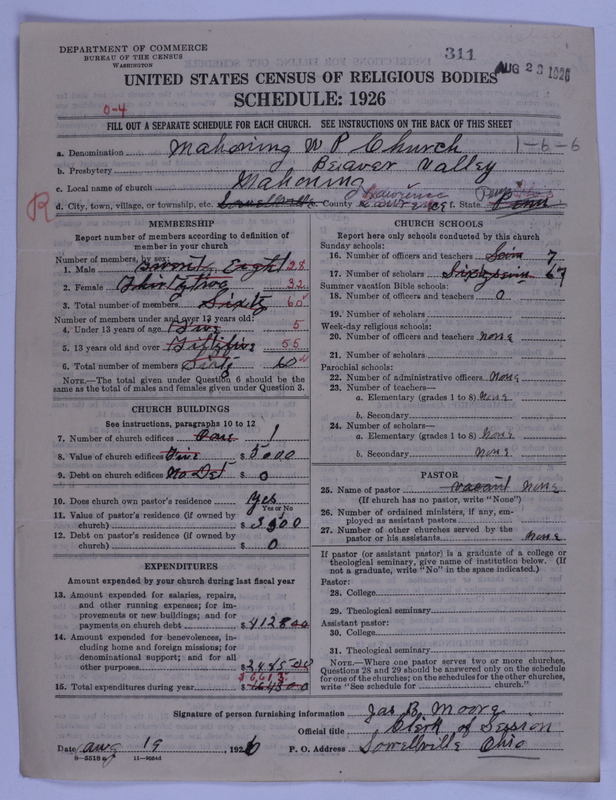 DEPARTMENT OF COMMERCE
BUREAU OF THE CENSUS
WASHINGTON
311
AUG 23 1926
UNITED STATES CENSUS OF RELIGIOUS BODIES
SCHEDULE: 1926
0-4
FILL OUT A SEPARATE SCHEDULE FOR EACH CHURCH. SEE INSTRUCTIONS ON THE BACK OF THIS SHEET
a. Denomination Mahoning U P Church 1-6-6
b. Presbytery Beaver Valley
c. Local name of church Mahoning
R
d. City, town, village, or township, etc. Lowellville County Lawrence Lawrence f. State Penn
MEMBERSHIP
Report number of members according to definition of
member in your church
Number of members, by sex:
1. Male Twenty Eight 28
2. Female Thirty two 32
3. Total number of members Sixty 60
Number of members under and over 13 years old:
4. Under 13 years of age Five 5
5. 13 years old and over Fiftyfive 55
6. Total number of members Sixty 60
NOTE.—The total given under Question 6 should be the
same as the total of males and females given under Question 3.
CHURCH BUILDINGS
See instructions, paragraphs 10 to 12
7. Number of church edifices One 1
8. Value of church edifices Five $ 5000
9. Debt on church edifices No Det $ 0
10. Does church own pastor's residence yes
Yes or No
11. Value of pastor's residence (if owned by
church) $ 3500
12. Debt on pastor's residence (if owned by
church) $ 0
EXPENDITURES
Amount expended by your church during last fiscal year
13. Amount expended for salaries, repairs,
and other running expenses; for im-
provements or new buildings; and for
payments on church debt $ 4128 00
14. Amount expended for benevolences, in-
cluding home and foreign missions; for
denominational support; and for all
other purposes $ 2485 00
$ 6613
15. Total expenditures during year $
CHURCH SCHOOLS
Report here only schools conducted by this church
Sunday schools:
16. Number of officers and teachers Seven 7
17. Number of scholars Sixty seven 67
Summer vacation Bible schools:
18. Number of officers and teachers 0
19. Number of scholars
Week-day religious schools:
20. Number of officers and teachers none
21. Number of scholars
Parochial schools:
22. Number of administrative officers none
23. Number of teachers—
a. Elementary (grades 1 to 8) none
b. Secondary
24. Number of scholars—
a. Elementary (grades 1 to 8) none
b. Secondary none
PASTOR
25. Name of pastor vacant none
(If church has no pastor, write "None")
26. Number of ordained ministers, if any, em-
ployed as assistant pastors
27. Number of other churches served by the
pastor or his assistants none
If pastor (or assistant pastor) is a graduate of a college or
theological seminary, give name of institution below. (If
not a graduate, write "No" in the space indicated.)
Pastor:
28. College
29. Theological seminary
Assistant pastor:
30. College
31. Theological seminary
NOTE.—Where one pastor serves two or more churches,
Questions 28 and 29 should be answered only on the schedule
for one of the churches; on the schedules for the other churches,
write "See schedule for church."
Signature of person furnishing information Jas B Moore
Official title Clerk of Session
Date Aug 19 1926 P. O. Address Lowellville Ohio
8-5518a 11-9054d